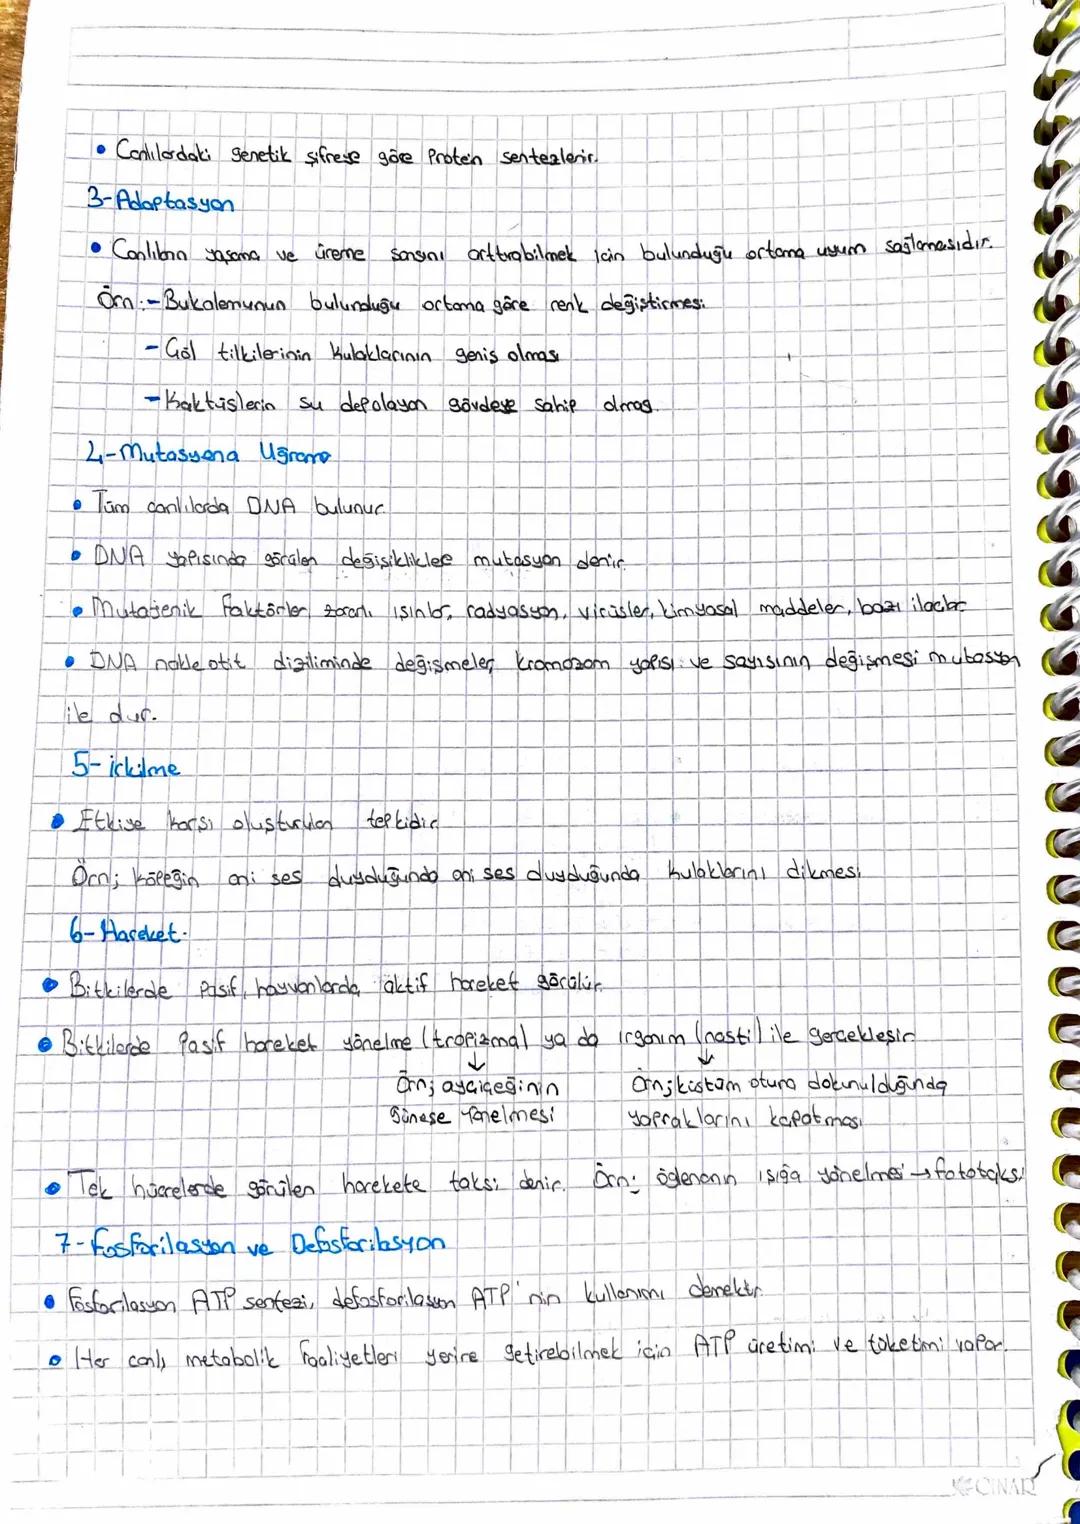 • Canlılardaki genetik şifreye göre Protein sentezlenir.
3-Adaptasyon
• Canlıların yaşama ve üreme şansını arttırabilmek için bulunduğu ortama uyum sağlamasıdır.
Örn:-Bukalemunun bulunduğu ortama göre renk değiştirmesi
-Çöl tilkilerinin kulaklarının geniş olması
-Kaktüslerin su depolayan gövdeye sahip olması
4-Mutasyona Uğrama
• Tüm canlılarda DNA bulunur
• DNA yapısında görülen değişikliklere mutasyon denir.
• Mutajenik faktörler, zararlı ışınlar, radyasyon, virüsler, kimyasal maddeler, bazı ilaçlar
• DNA nükleotit diziliminde değişmeler, kromozom yapısı ve sayısının değişmesi mutasyon
ile dur.
5-irkilme
• Etkiye karşı oluşturulan tepkidir
Örn; köpeğin ani ses duyduğunda ani ses duyduğunda kulaklarını dikmesi
6-Hareket.
• Bitkilerde pasif, hayvanlarda aktif hareket görülür.
• Bitkilerde Pasif hareket yönelme (tropizma) ya da ırganım (nasti) ile gerçekleşir
↓ ↓
Örn; ayçiçeğinin Örn; küstüm otuna dokunulduğunda
güneşe yönelmesi yapraklarını kapatması
• Tek hücrelerde görülen harekete taksi denir. Örn: öglenanın ışığa yönelmesi → fototaksi
7-Fosforilasyon ve Defosforilasyon
• Fosforilasyon ATP sentezi, defosforilasyon ATP'nin kullanımı demektir
• Her canlı metabolik faaliyetleri yerine getirebilmek için ATP üretimi ve tüketimi yapar.
ÇINAR